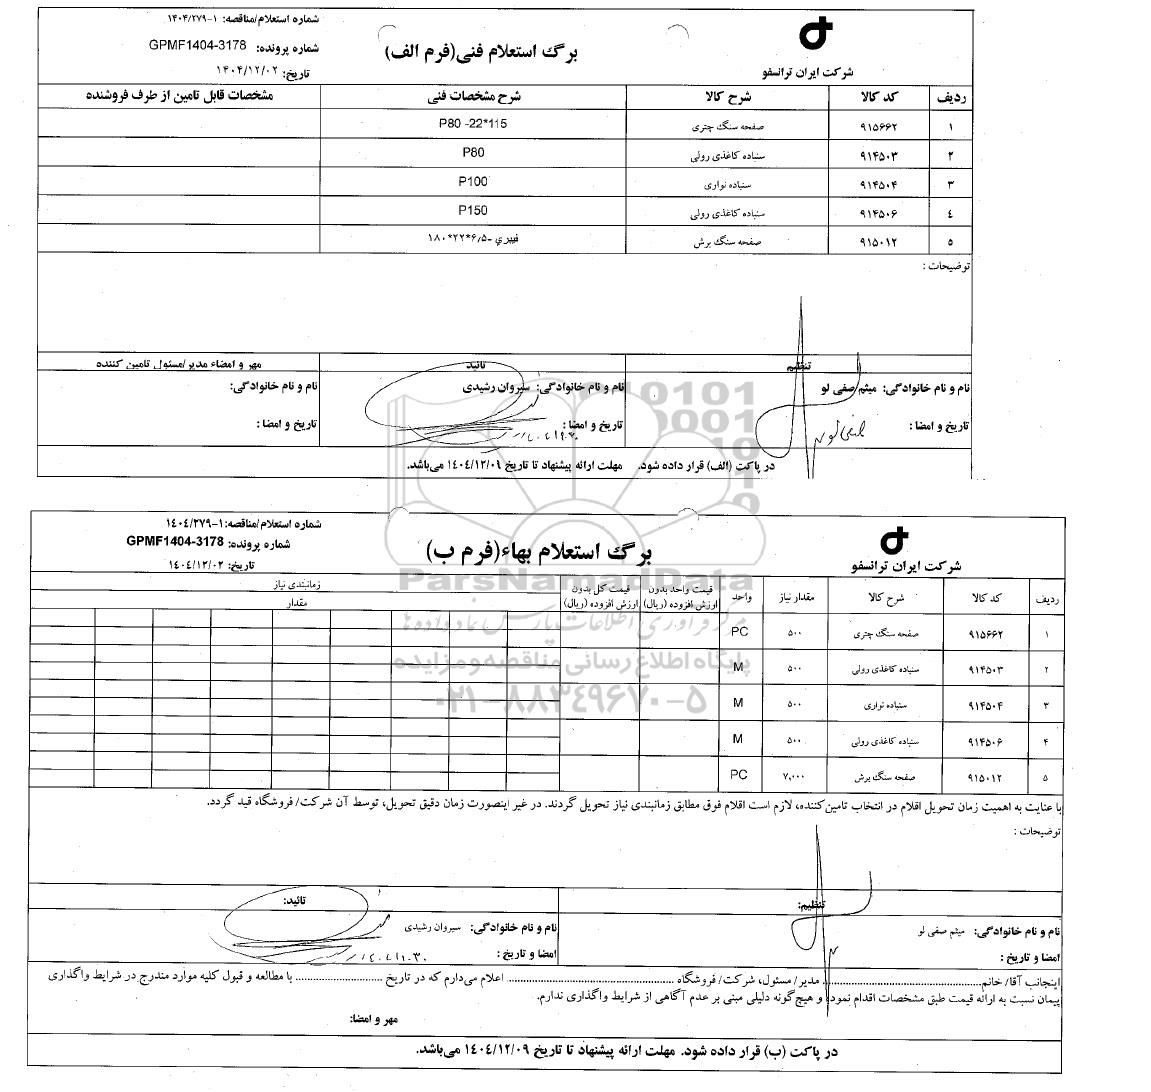 شماره استعلام/مناقصه: ۱-۱۴۰۴/۲۷۹
شماره پرونده: GPMF1404-3178
تاریخ: ۱۴۰۴/۱۲/۰۲
برگ استعلام فنی(فرم الف)
شرکت ایران ترانسفو
ردیف کد کالا شرح کالا شرح مشخصات فنی مشخصات قابل تامین از طرف فروشنده
۱ ۹۱۵۶۶۲ صفحه سنگ چتری P80 -22*115
۲ ۹۱۴۵۰۳ سنباده کاغذی رولی P80
۳ ۹۱۴۵۰۴ سنباده نواری P100
٤ ۹۱۴۵۰۶ سنباده کاغذی رولی P150
۵ ۹۱۵۰۱۲ صفحه سنگ برش فیبري -۱۸۰*۲۲*۶٫۵
توضیحات :
تنظیم تائید مهر و امضاء مدیر/مسئول تامین کننده
نام و نام خانوادگی: میثم صفی لو نام و نام خانوادگی: سیروان رشیدی نام و نام خانوادگی:
تاریخ و امضا : تاریخ و امضا : تاریخ و امضا :
در پاکت (الف) قرار داده شود. مهلت ارائه پیشنهاد تا تاریخ ۱٤۰٤/۱۲/۰۹ می‌باشد.
شماره استعلام/مناقصه:۱-۱٤۰٤/۲۷۹
شماره پرونده: GPMF1404-3178
تاریخ: ۱٤۰٤/۱۲/۰۲
برگ استعلام بهاء(فرم ب)
شرکت ایران ترانسفو
ردیف کد کالا شرح کالا مقدار نیاز واحد قیمت واحد بدون ارزش افزوده (ریال) قیمت کل بدون ارزش افزوده (ریال) زمانبندی نیاز
مقدار
۱ ۹۱۵۶۶۲ صفحه سنگ چتری ۵۰۰ PC
۲ ۹۱۴۵۰۳ سنباده کاغذی رولی ۵۰۰ M
۳ ۹۱۴۵۰۴ سنباده نواری ۵۰۰ M
۴ ۹۱۴۵۰۶ سنباده کاغذی رولی ۵۰۰ M
۵ ۹۱۵۰۱۲ صفحه سنگ برش ۷,۰۰۰ PC
ParsNamadData
مرکز فرآوری اطلاعات پارس نماد داده ها
پایگاه اطلاع رسانی مناقصه و مزایده
۰۲۱-۸۸۳۴۹۶۷۰-۵
با عنایت به اهمیت زمان تحویل اقلام در انتخاب تامین‌کننده، لازم است اقلام فوق مطابق زمانبندی نیاز تحویل گردند. در غیر اینصورت زمان دقیق تحویل، توسط آن شرکت/ فروشگاه قید گردد.
توضیحات :
تنظیم: تائید:
نام و نام خانوادگی: میثم صفی لو نام و نام خانوادگی: سیروان رشیدی
امضا و تاریخ : امضا و تاریخ :
اینجانب آقا/ خانم................ مدیر/ مسئول، شرکت/ فروشگاه ................ اعلام می‌دارم که در تاریخ ................ با مطالعه و قبول کلیه موارد مندرج در شرایط واگذاری
پیمان نسبت به ارائه قیمت طبق مشخصات اقدام نموده و هیچ‌گونه دلیلی مبنی بر عدم آگاهی از شرایط واگذاری ندارم.
مهر و امضا:
در پاکت (ب) قرار داده شود. مهلت ارائه پیشنهاد تا تاریخ ۱٤۰٤/۱۲/۰۹ می‌باشد.